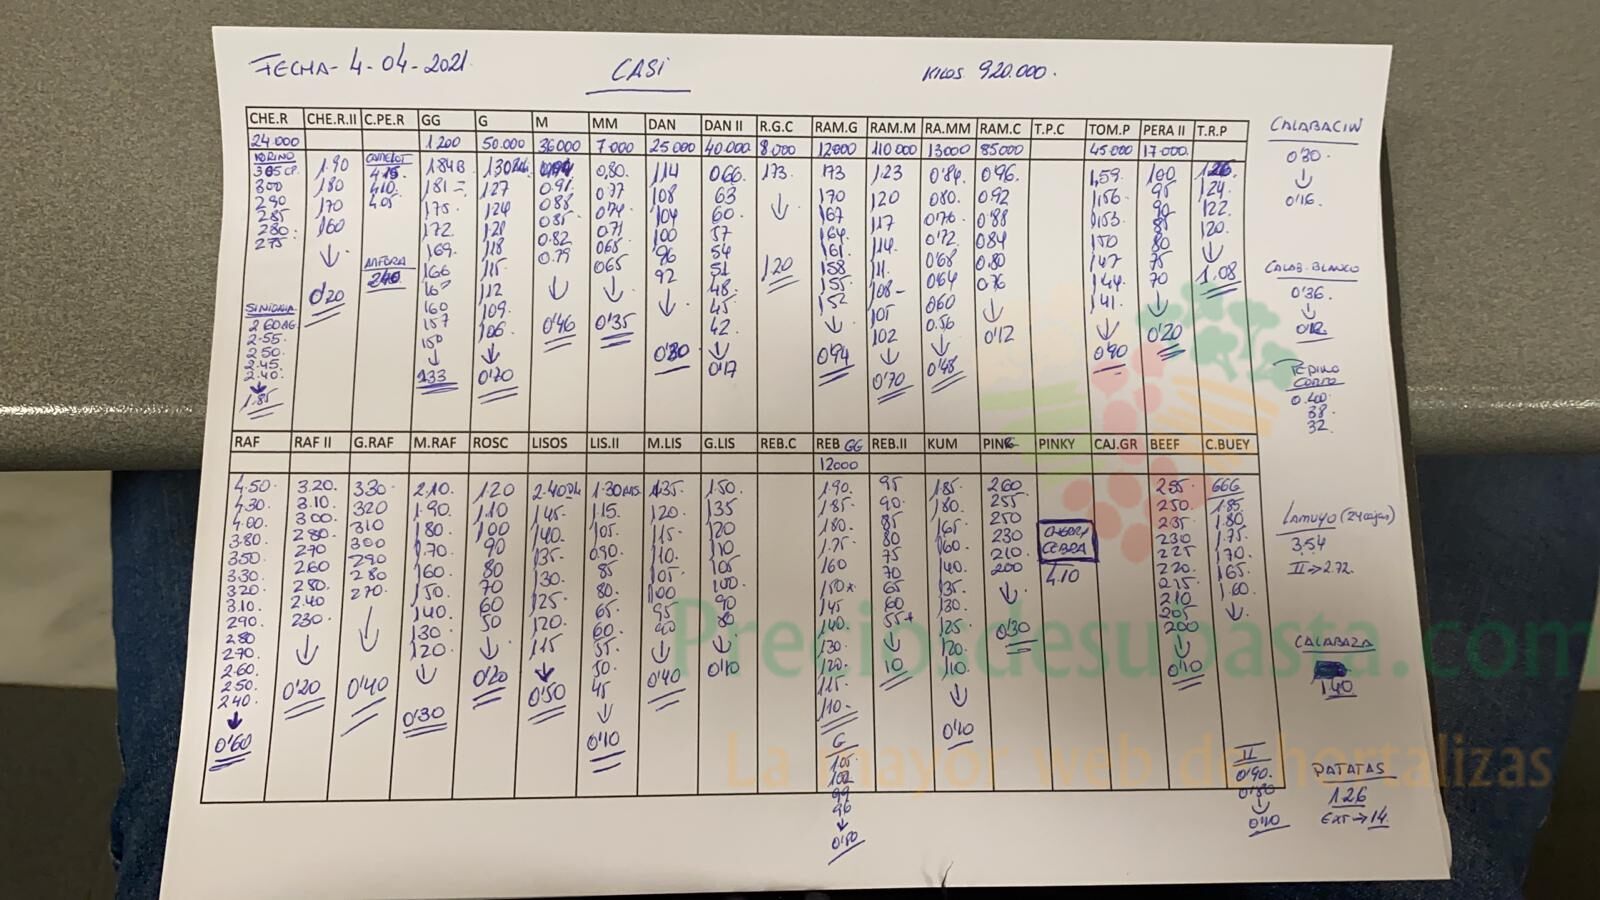 FECHA- 4-04-2021 CASI KILOS 920.000.
CHE.R CHE.R.II C.PE.R GG G M MM DAN DAN II R.G.C RAM.G RAM.M RA.MM RAM.C T.P.C TOM.P PERA II T.R.P
24.000 1.200 50.000 36000 7.000 25.000 40.000 8.000 12000 110.000 13000 85000 45.000 17.000.
300
290
285
280.
275
SINIGALIA
2.55.
2.50.
2.45.
2.40.
↓
1.85
1.90
180
170
160
↓
0'20
CAMELOT
4.15
410.
4.05
ANFORA
240
184B
181 =
175.
172.
169.
166
160
157
150
↓
133
127
124
121
118
115.
112
109.
106.
↓
0'70
0.91
0.88
0.85.
0.82
0.79
↓
0'46
0,80.
0.77
0.74
0.71
065
↓
0'35
114
108
104
100
96
92
↓
066.
63
60.
57
54
51
48.
45
42.
↓
0'17
173.
↓
120
173
170
167
164
161.
158
155
152
↓
0'94
1.23
120
117
114.
111.
108-
105
102
↓
0'70
0'84.
080.
0'76
0'72
0'68
064
060
0.56
↓
0'48
096.
0.92
0'88
084
0.80
0'76
↓
0'12
1,59.
1,56.
153.
150
147
144
141.
↓
0'90
100
95
90
85
80
75
70
↓
0'20
1.26
124.
122.
120.
↓
1.08
CALABACIN
0'30.
↓
0'16.
CALAB. BLANCO
0'36.
↓
0'12
PEPINO
CORTO
0.400
38.
32.
RAF RAF II G.RAF M.RAF ROSC LISOS LIS.II M.LIS G.LIS REB.C REB GG REB.II KUM PINK PINKY CAJ.GR BEEF C.BUEY
12000
4.50.
4.30.
4.00.
3.80.
350.
330.
320.
3.10.
290.
2.80
2.70.
2.60.
2.50.
240.
↓
0'60
3.20.
3.10.
300.
280.
270
2.60
280.
2.40
230.
↓
0'20
330.
320
310
300
290
280
270.
↓
0'40
2.10.
1.90.
180.
1.70.
160.
150.
140
130
120.
↓
0'30
120
110
100
90
80
70
60
50
↓
0'20
145.
140.
135.
130.
125.
120.
115
↓
0'50
1.15.
105.
85
80.
65.
60.
55.
50.
45
↓
0'10
135.
120.
115.
110.
105.
100
95
90
↓
0'40
1.50.
135
120
110
105.
100.
90
80
↓
0'10
1.90.
1.85.
180.
1.75.
160
150*
145
140.
130
120.
115.
110-
G
105
102
99
96
↓
95
90.
85
80
75
70
65
60
55+
↓
10
1.85
180.
165.
160.
140.
135.
130.
125.
120
110.
↓
0'10
260
255
250
230
210
200
↓
0'30
CHERRY
CEBRA
4.10
2.55.
250.
235
230
225
220.
215
210
205
200
↓
0'10
666
1.85
1.80
1.75
170.
165
1.60.
↓
II
0'90.
0'80
↓
0'10
LAMUYO (24 cajas)
3.54
II → 2.72.
CALABAZA
1.40
PATATAS
1.26
EXT → 14.
Preciodesubasta.com
La mayor web de hortalizas